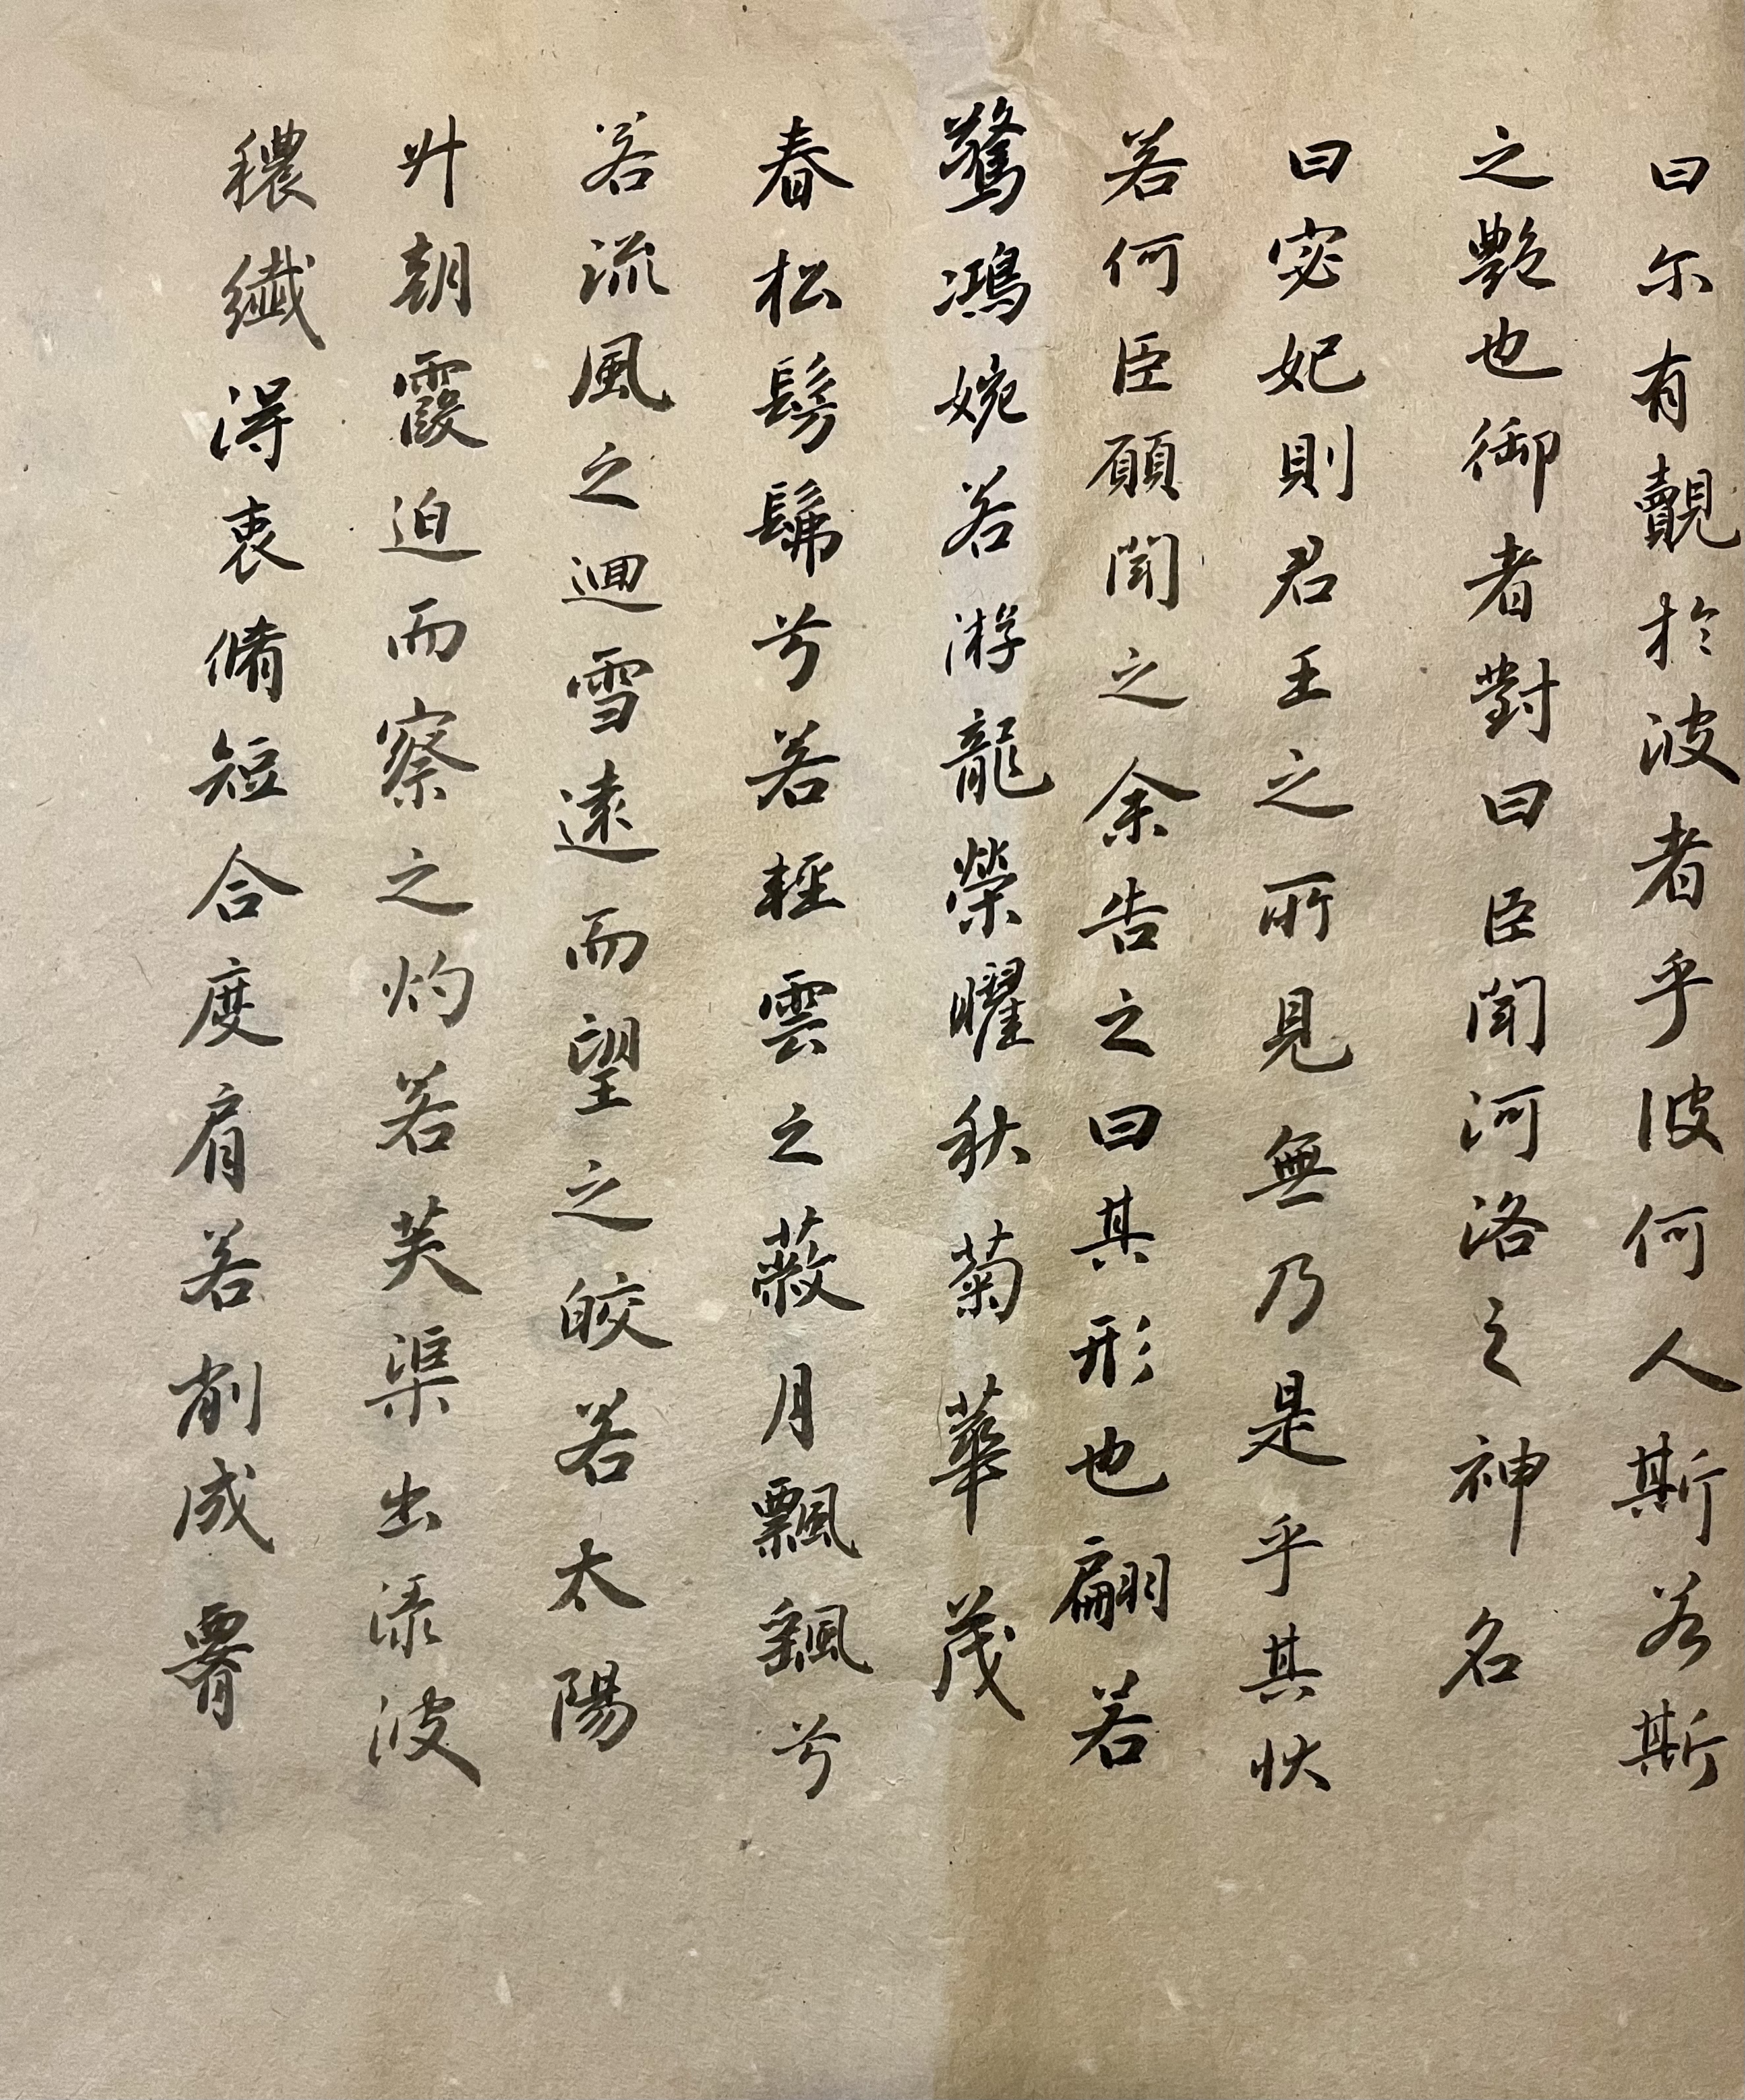 曰尔有覿於波者乎彼何人斯若斯
之艷也御者對曰臣聞河洛之神名
曰宓妃則君王之所見無乃是乎其狀
若何臣願聞之余告之曰其形也翩若
驚鴻婉若游龍榮曜秋菊華茂
春松髣髴兮若輕雲之蔽月飄飖兮
若流風之迴雪遠而望之皎若太陽
升朝霞迫而察之灼若芙渠出淥波
穠纖得衷脩短合度肩若削成署